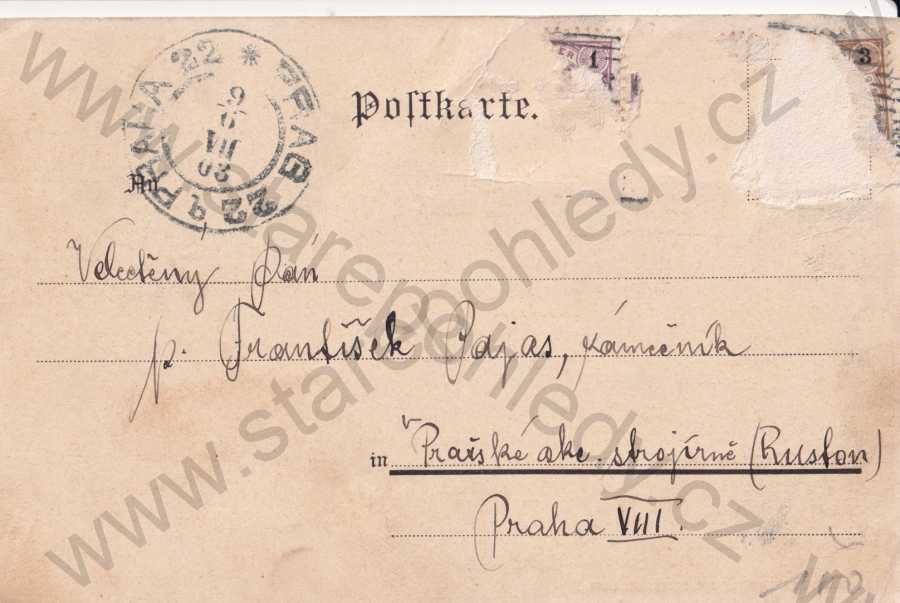 PRAHA 22 * PRAG 22
9
8
VII
03
1
3
Postkarte.
An
Velectěný pán
p. František Pajas, zámečník
in v Pražské akc. strojírně (Ruston)
Praha VIII.
www.starepohledy.cz
www.starepohledy.cz